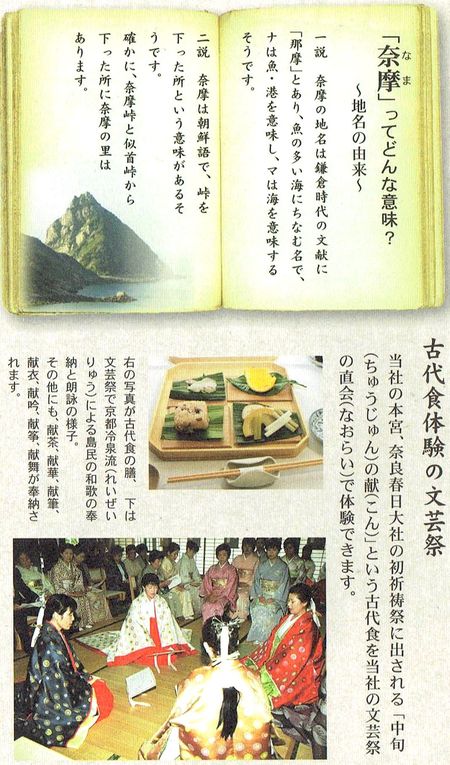 「奈摩」ってどんな意味？
なま
～地名の由来～
一説　奈摩の地名は鎌倉時代の文献に
「那摩」とあり、魚の多い海にちなむ名で、
ナは魚・港を意味し、マは海を意味する
そうです。
二説　奈摩は朝鮮語で、峠を
下った所という意味があるそ
うです。
確かに、奈摩峠と似首峠から
下った所に奈摩の里は
あります。
古代食体験の文芸祭
当社の本宮、奈良春日大社の初祈祷祭に出される「中旬
（ちゅうじゅん）の献（こん）」という古代食を当社の文芸祭
の直会（なおらい）で体験できます。
右の写真が古代食の膳、　下は
文芸祭で京都冷泉流（れいぜい
りゅう）による島民の和歌の奉
納と朗詠の様子。
その他にも、献茶、献華、献筆、
献衣、献吟、献箏、献舞が奉納さ
れます。